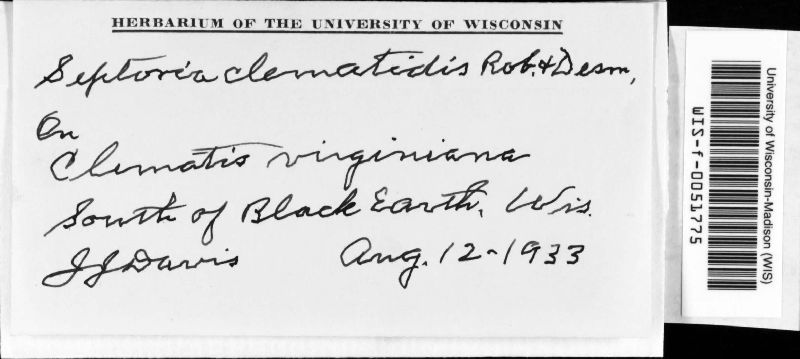 HERBARIUM OF THE UNIVERSITY OF WISCONSIN
Septoria clematidis Rob. & Desm,
On
Clematis virginiana
South of Black Earth, Wis.
JJ Davis Aug. 12-1933
University of Wisconsin-Madison (WIS)
WIS-f-0051775